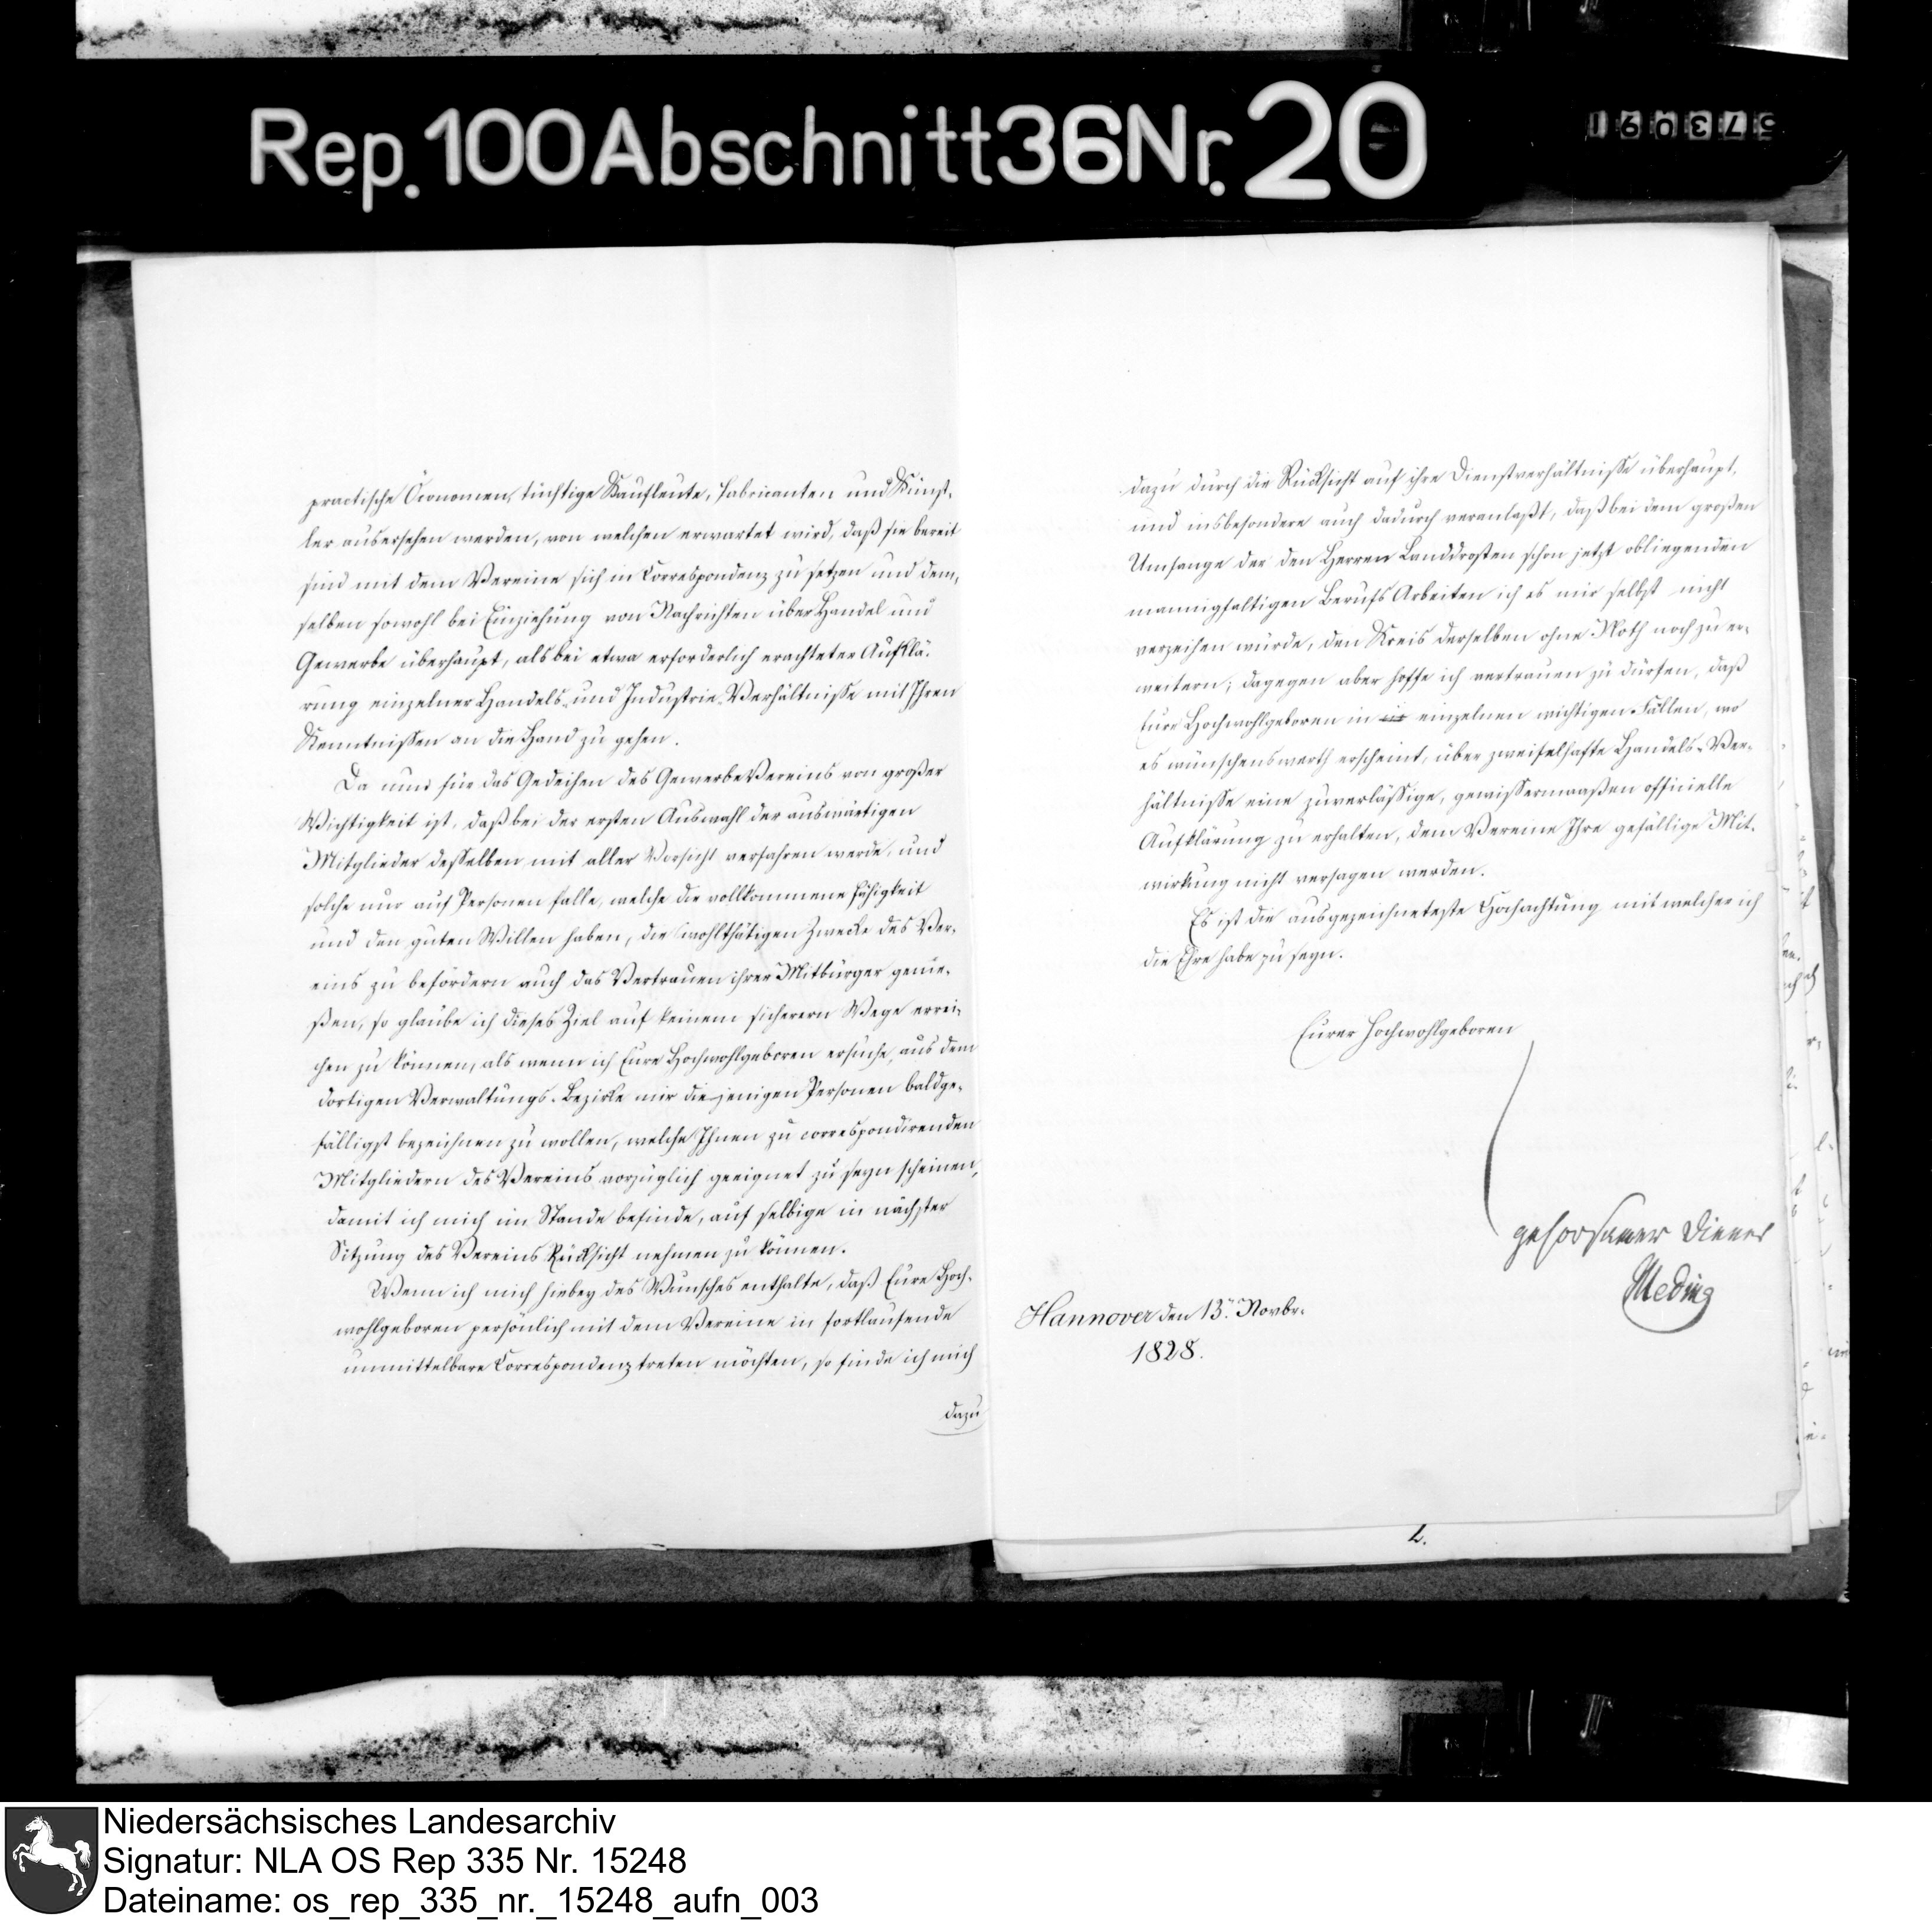 Rep. 100 Abschnitt 36 Nr. 20
practische Öconomen, tüchtige Kaufleute, Fabricanten und Künst-
ler ausersehen werden, von welchen erwartet wird, daß sie bereit
sind mit dem Vereine sich in Correspondenz zu setzen und dem-
selben sowohl bei Einziehung von Nachrichten über Handel und
Gewerbe überhaupt, als bei etwa erforderlich erachteter Aufklä-
rung einzelner Handels- und Industrie-Verhältnisse mit Ihren
Kenntnissen an die Hand zu gehen.
Da nun für das Gedeihen des GewerbeVereins von großer
Wichtigkeit ist, daß bei der ersten Auswahl der auswärtigen
Mitglieder desselben mit aller Vorsicht verfahren werde, und
solche nur auf Personen falle, welche die vollkommene Fähigkeit
und den guten Willen haben, die wohlthätigen Zwecke des Ver-
eins zu befördern auch das Vertrauen ihrer Mitbürger genie-
ßen, so glaube ich dieses Ziel auf keinem sicherern Wege errei-
chen zu können, als wenn ich Eure Hochwohlgeboren ersuche, aus dem
dortigen Verwaltungs-Bezirke mir diejenigen Personen baldge-
fälligst bezeichnen zu wollen, welche Ihnen zu correspondirenden
Mitgliedern des Vereins vorzüglich geeignet zu seyn scheinen,
damit ich mich im Stande befinde, auf selbige in nächster
Sitzung des Vereins Rücksicht nehmen zu können.
Wenn ich mich hiebey des Wunsches enthalte, daß Eure Hoch-
wohlgeboren persönlich mit dem Vereine in fortlaufende
unmittelbare Correspondenz treten möchten, so finde ich mich
dazu
dazu durch die Rücksicht auf ihre Dienstverhältnisse überhaupt,
und insbesondere auch dadurch veranlaßt, daß bei dem großen
Umfange der den Herren Landdrosten schon jetzt obliegenden
mannigfaltigen Berufs Arbeiten ich es mir selbst nicht
verzeihen würde, den Kreis derselben ohne Noth noch zu er-
weitern; dagegen aber hoffe ich vertrauen zu dürfen, daß
Eure Hochwohlgeboren in einzelnen wichtigen Fällen, wo
es wünschenswerth erscheint, über zweifelhafte Handels-Ver-
hältnisse eine zuverlässige, gewissermaaßen officielle
Aufklärung zu erhalten, dem Vereine Ihre gefällige Mit-
wirkung nicht versagen werden.
Es ist die ausgezeichneteste Hochachtung mit welcher ich
die Ehre habe zu seyn.
Eurer Hochwohlgeboren
gehorsamer Diener
Meding
Hannover den 13. Novbr.
1828.
Niedersächsisches Landesarchiv
Signatur: NLA OS Rep 335 Nr. 15248
Dateiname: os_rep_335_nr._15248_aufn_003